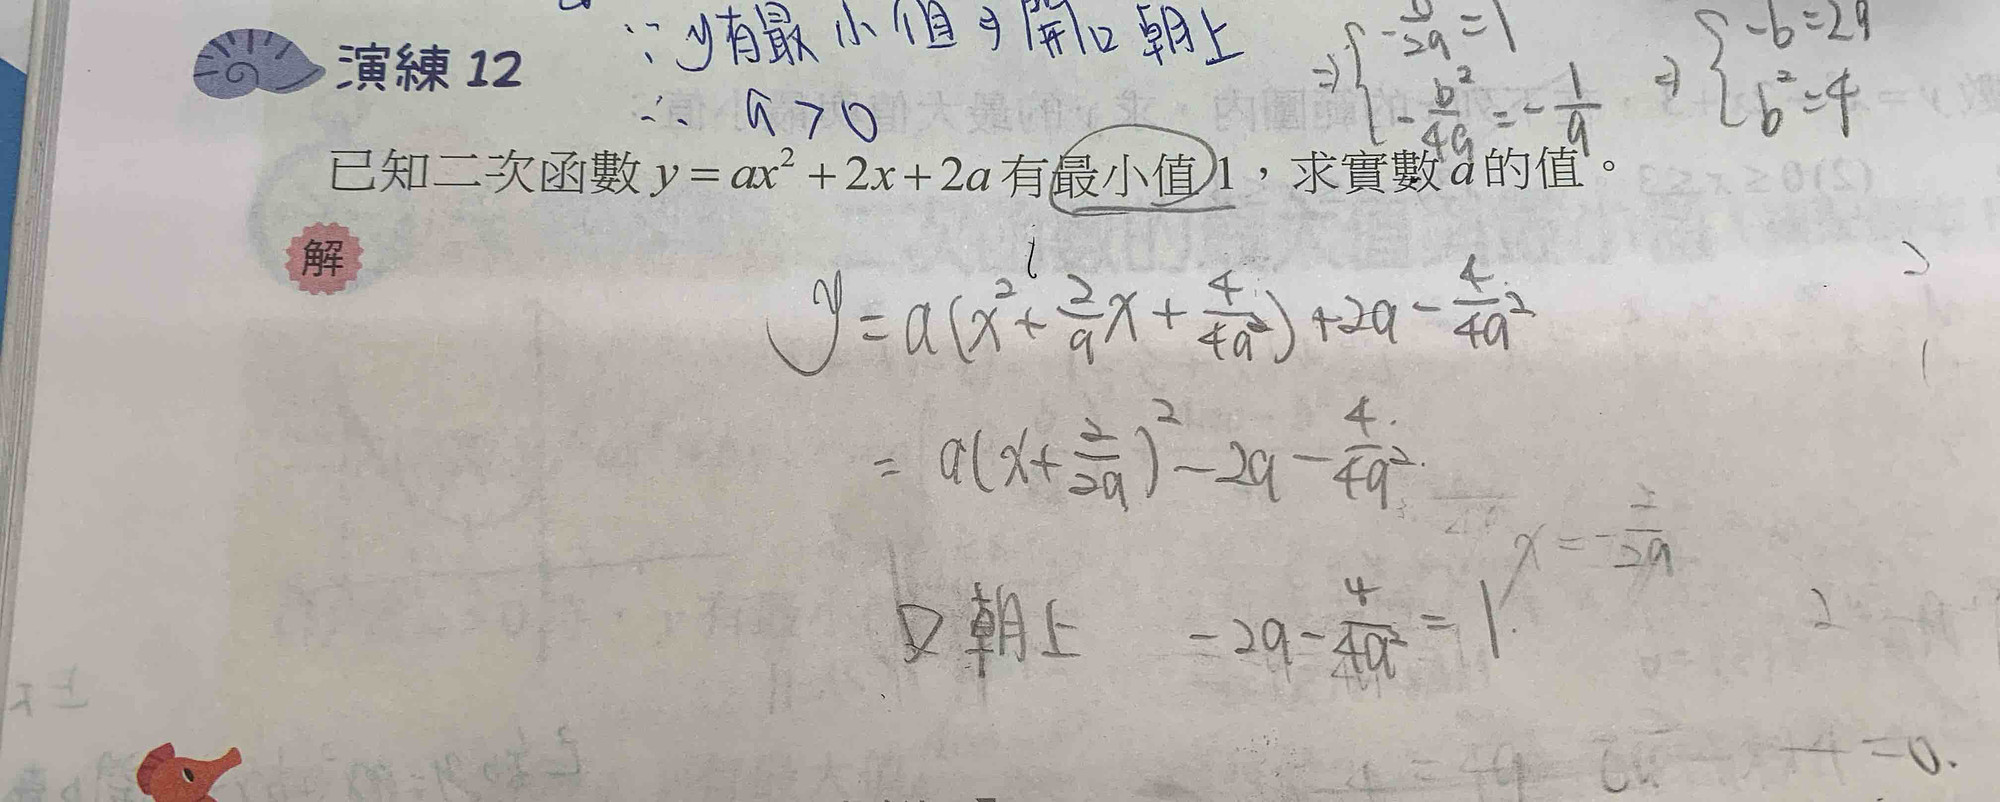 演練 12
∵ y有最小值⇒開口朝上
∴ a > 0
⇒ { -b/2a = 1
-b²/4a = -1/a
⇒ { -b = 2a
b² = 4
已知二次函數 y = ax² + 2x + 2a 有最小值1，求實數 a 的值。
解
y = a(x² + 2/a x + 4/4a²) + 2a - 4/4a²
= a(x + 2/2a)² - 2a - 4/4a²
x = -2/2a
口朝上 -2a - 4/4a² = 1
= 0.